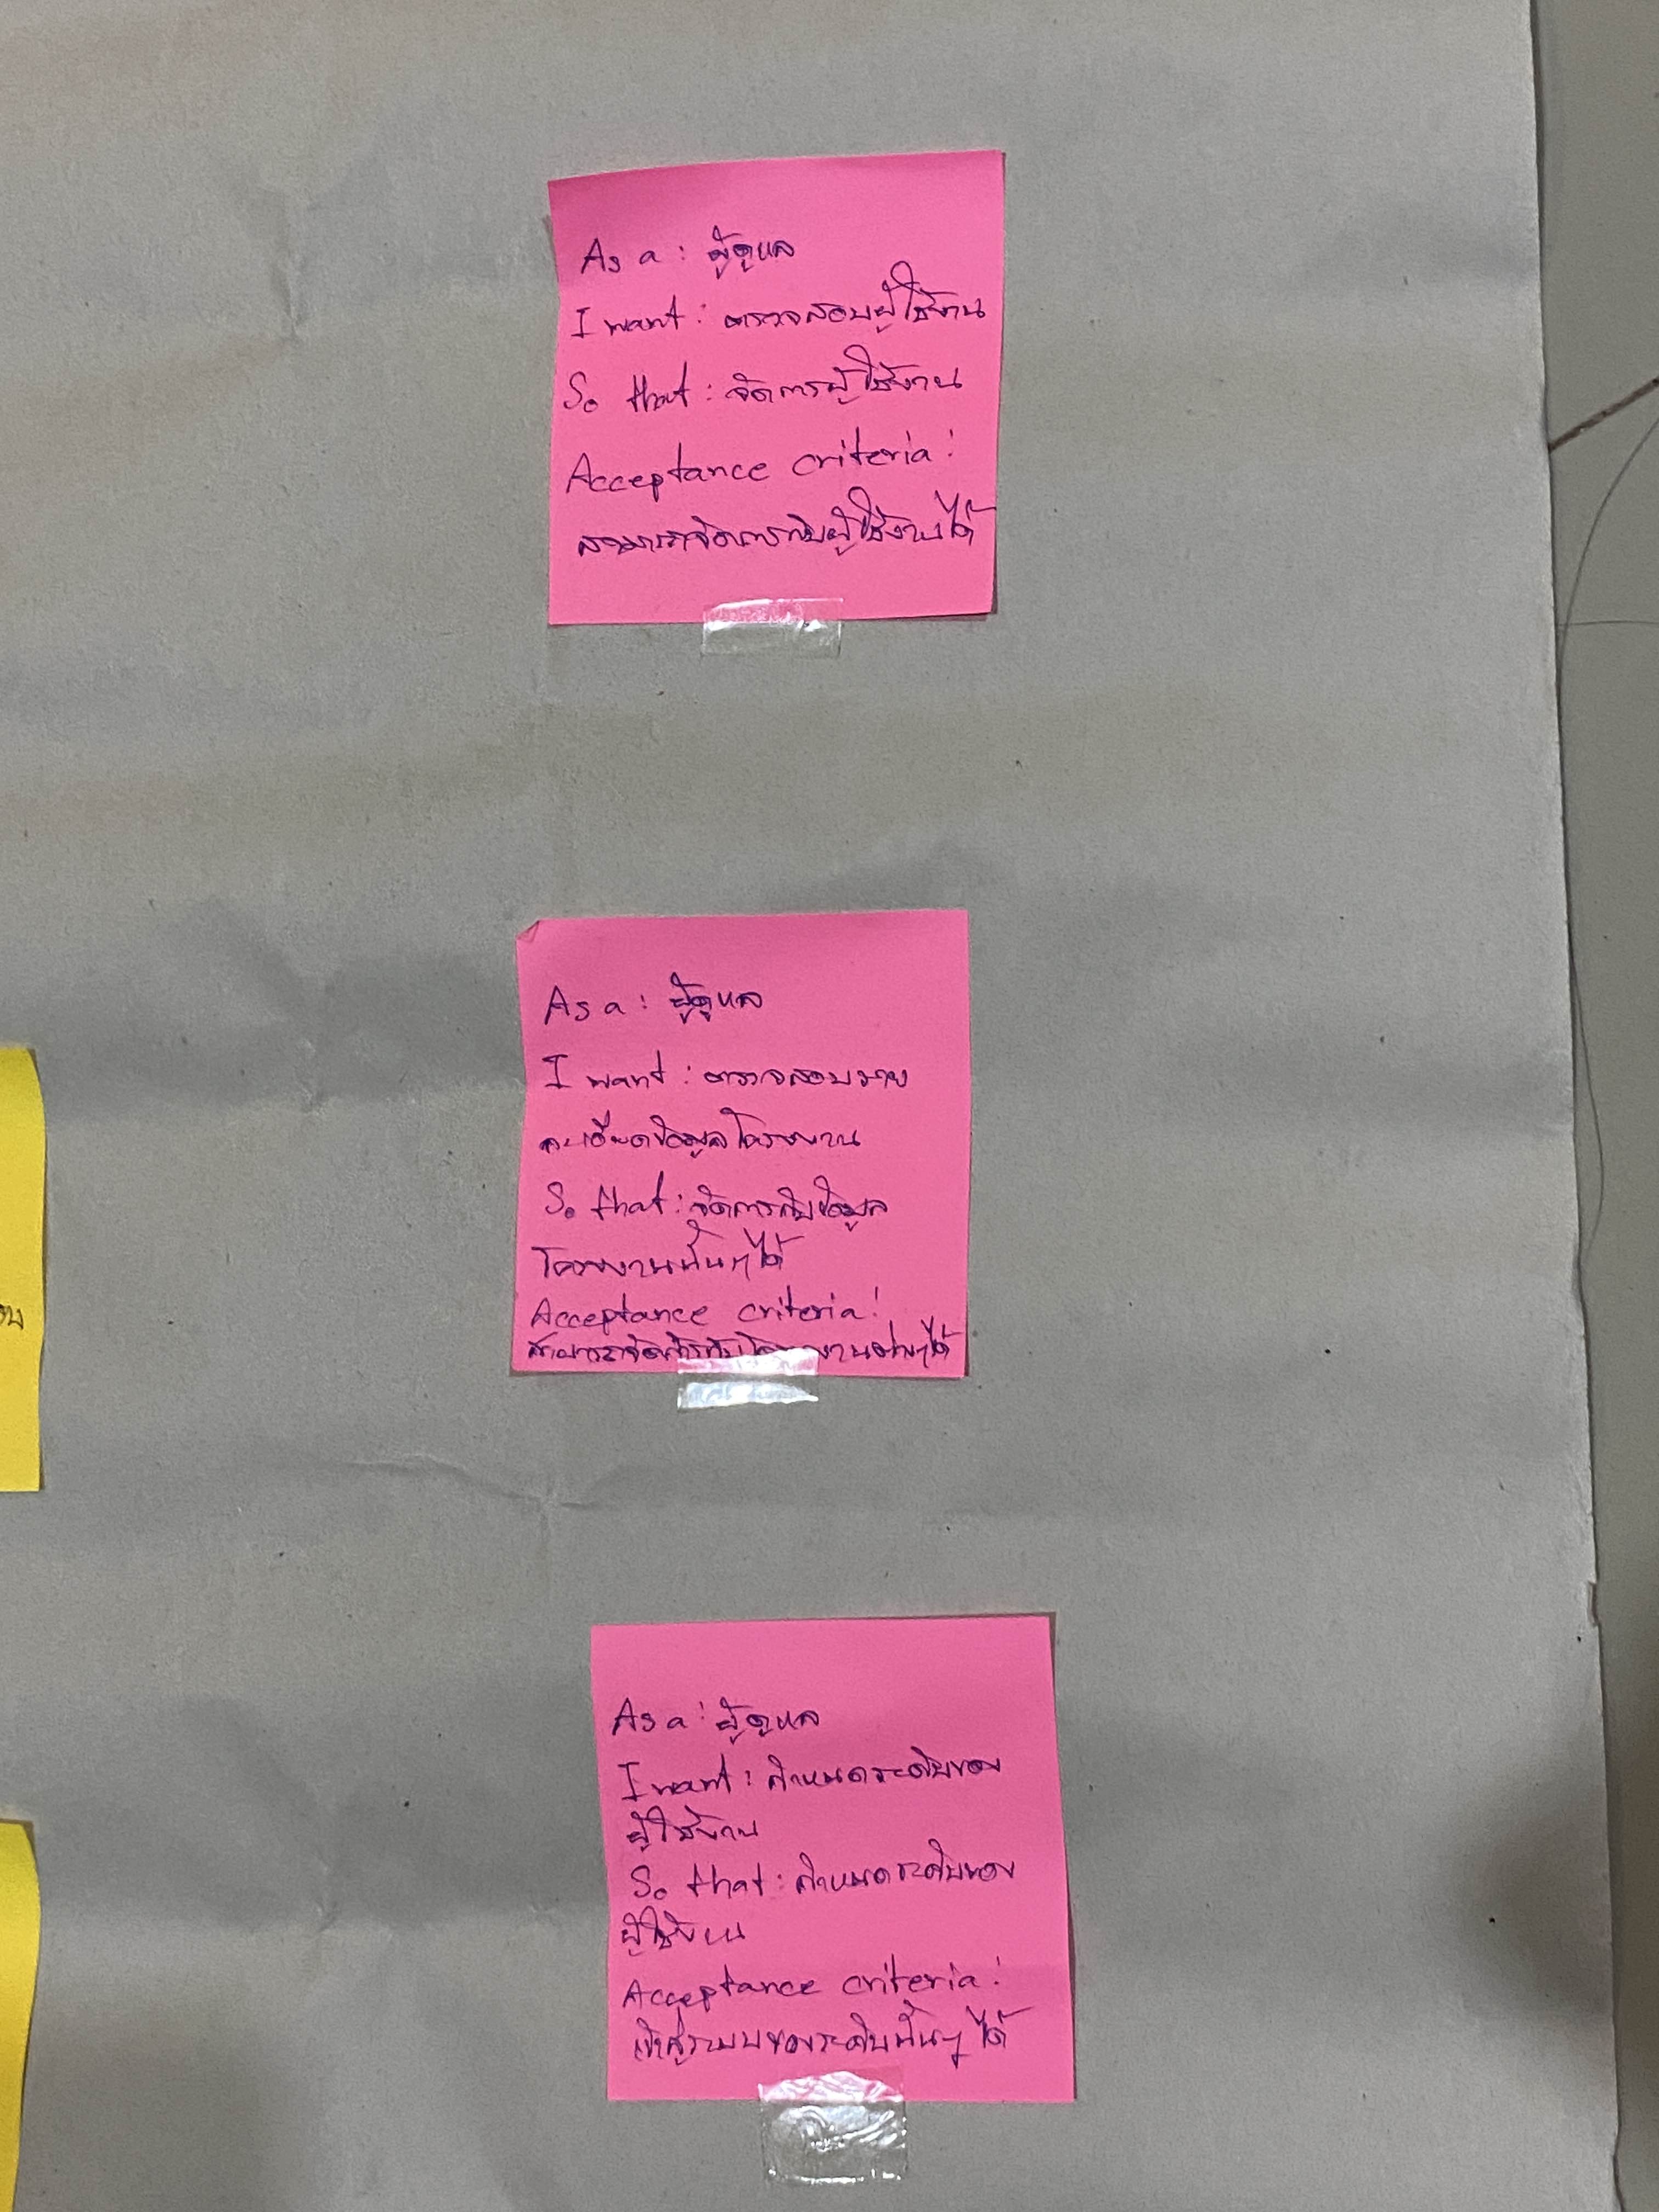 As a : ผู้ดูแล
I want : ตรวจสอบผู้ใช้งาน
So that : จัดการผู้ใช้งาน
Acceptance criteria :
สามารถจัดการกับผู้ใช้งานได้
As a : ผู้ดูแล
I want : ตรวจสอบราย
ละเอียดข้อมูลโครงงาน
So that : จัดการกับข้อมูล
โครงงานนั้นๆได้
Acceptance criteria :
สามารถจัดการกับโครงงานต่างๆได้
As a : ผู้ดูแล
I want : กำหนดระดับของ
ผู้ใช้งาน
So that : กำหนดระดับของ
ผู้ใช้งาน
Acceptance criteria :
เข้าสู่ระบบของระดับนั้นๆ ได้